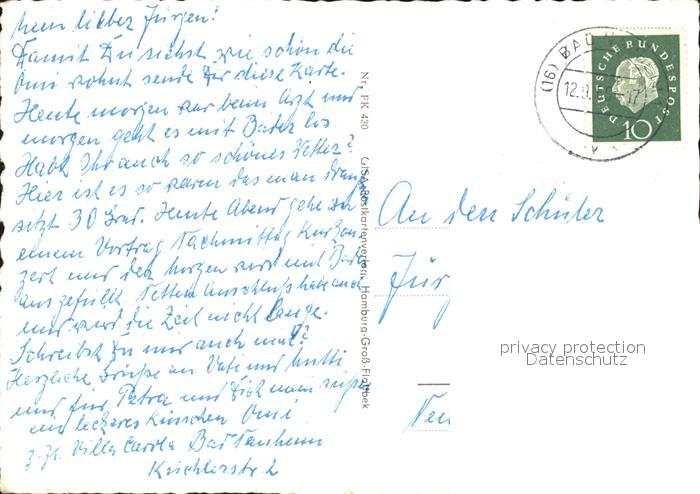 Mein lieber Jürgen!
Damit Du siehst wie schön die
Omi wohnt sende Dir diese Karte.
Heute morgen war beim Arzt und
morgen geht es mit Bäder los.
Habt Ihr auch so schönes Wetter?
Hier ist es so warm das man draußen
sitzt 30 Grad. Heute Abend gehe zu
einem Vortrag Nachmittag Kurkon
zert und der morgen wird mit Bäder
ausgefüllt Netten Anschluß habe auch
und wird die Zeit nicht lange.
Schreibst Du mir auch mal?
Herzliche Grüße an Vati und Mutti
und für Petra und Dich mein süßes
ein leckeres Küsschen Omi
z. Zt. Villa Carola Bad Nauheim
2
Nr. FK 420
Postkartenverlag, Hamburg-Groß-Flottbek
(16) BAD
12.
DEUTSCHE BUNDESPOST
10
An den Schüler
Jür
privacy protection
Datenschutz